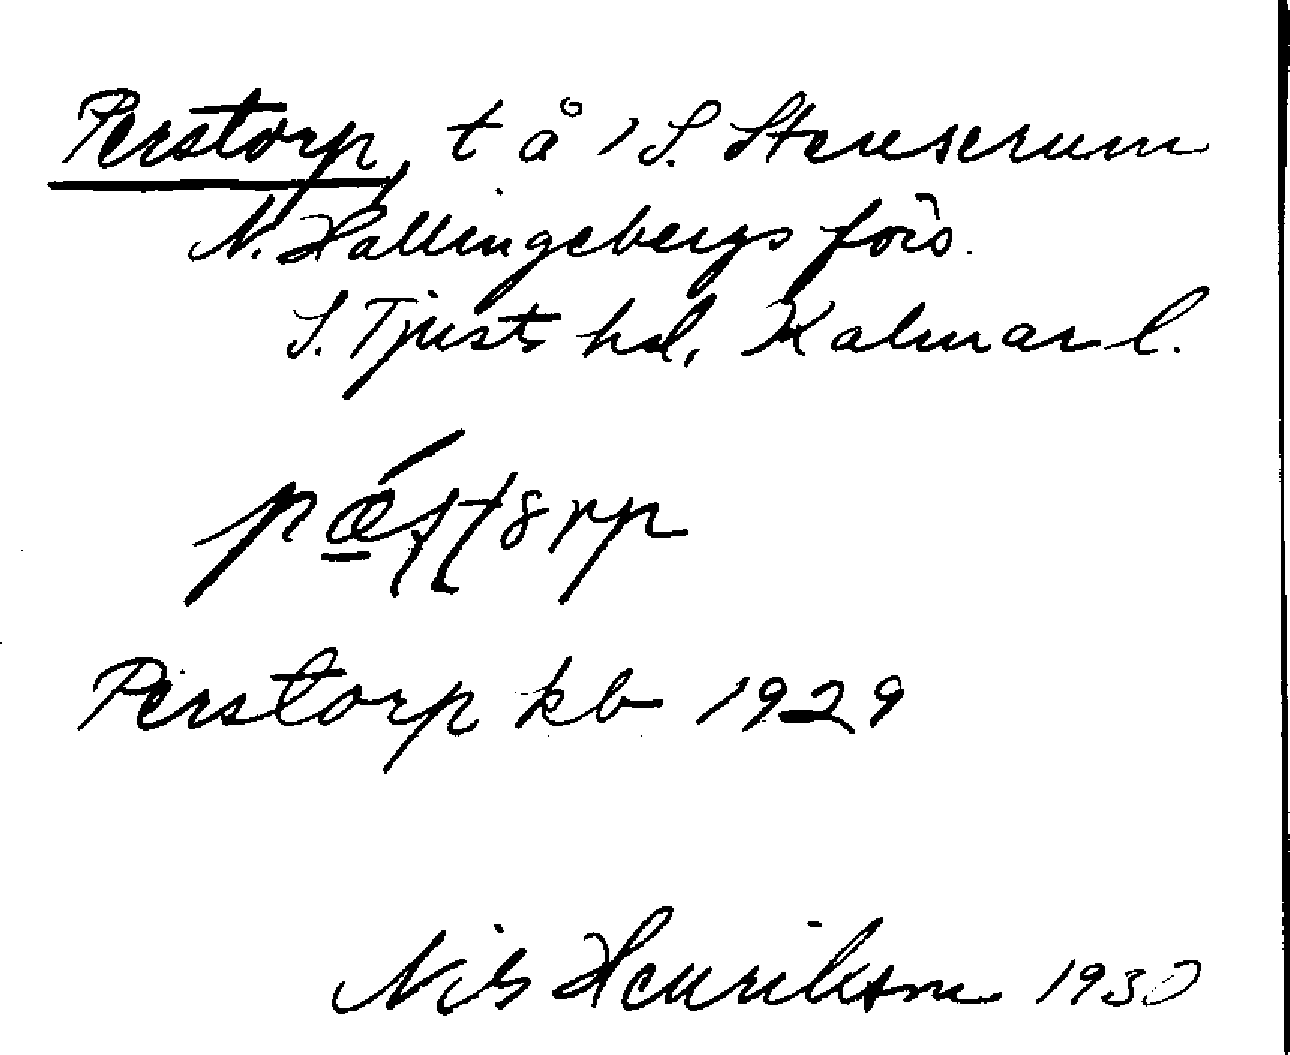 Perstorp, t å 1 S. Stenserum
N. Hallingebergs förs.
S. Tjusts hd, Kalmar l.
Perstorp kb 1929
Nils Henrikson 1930